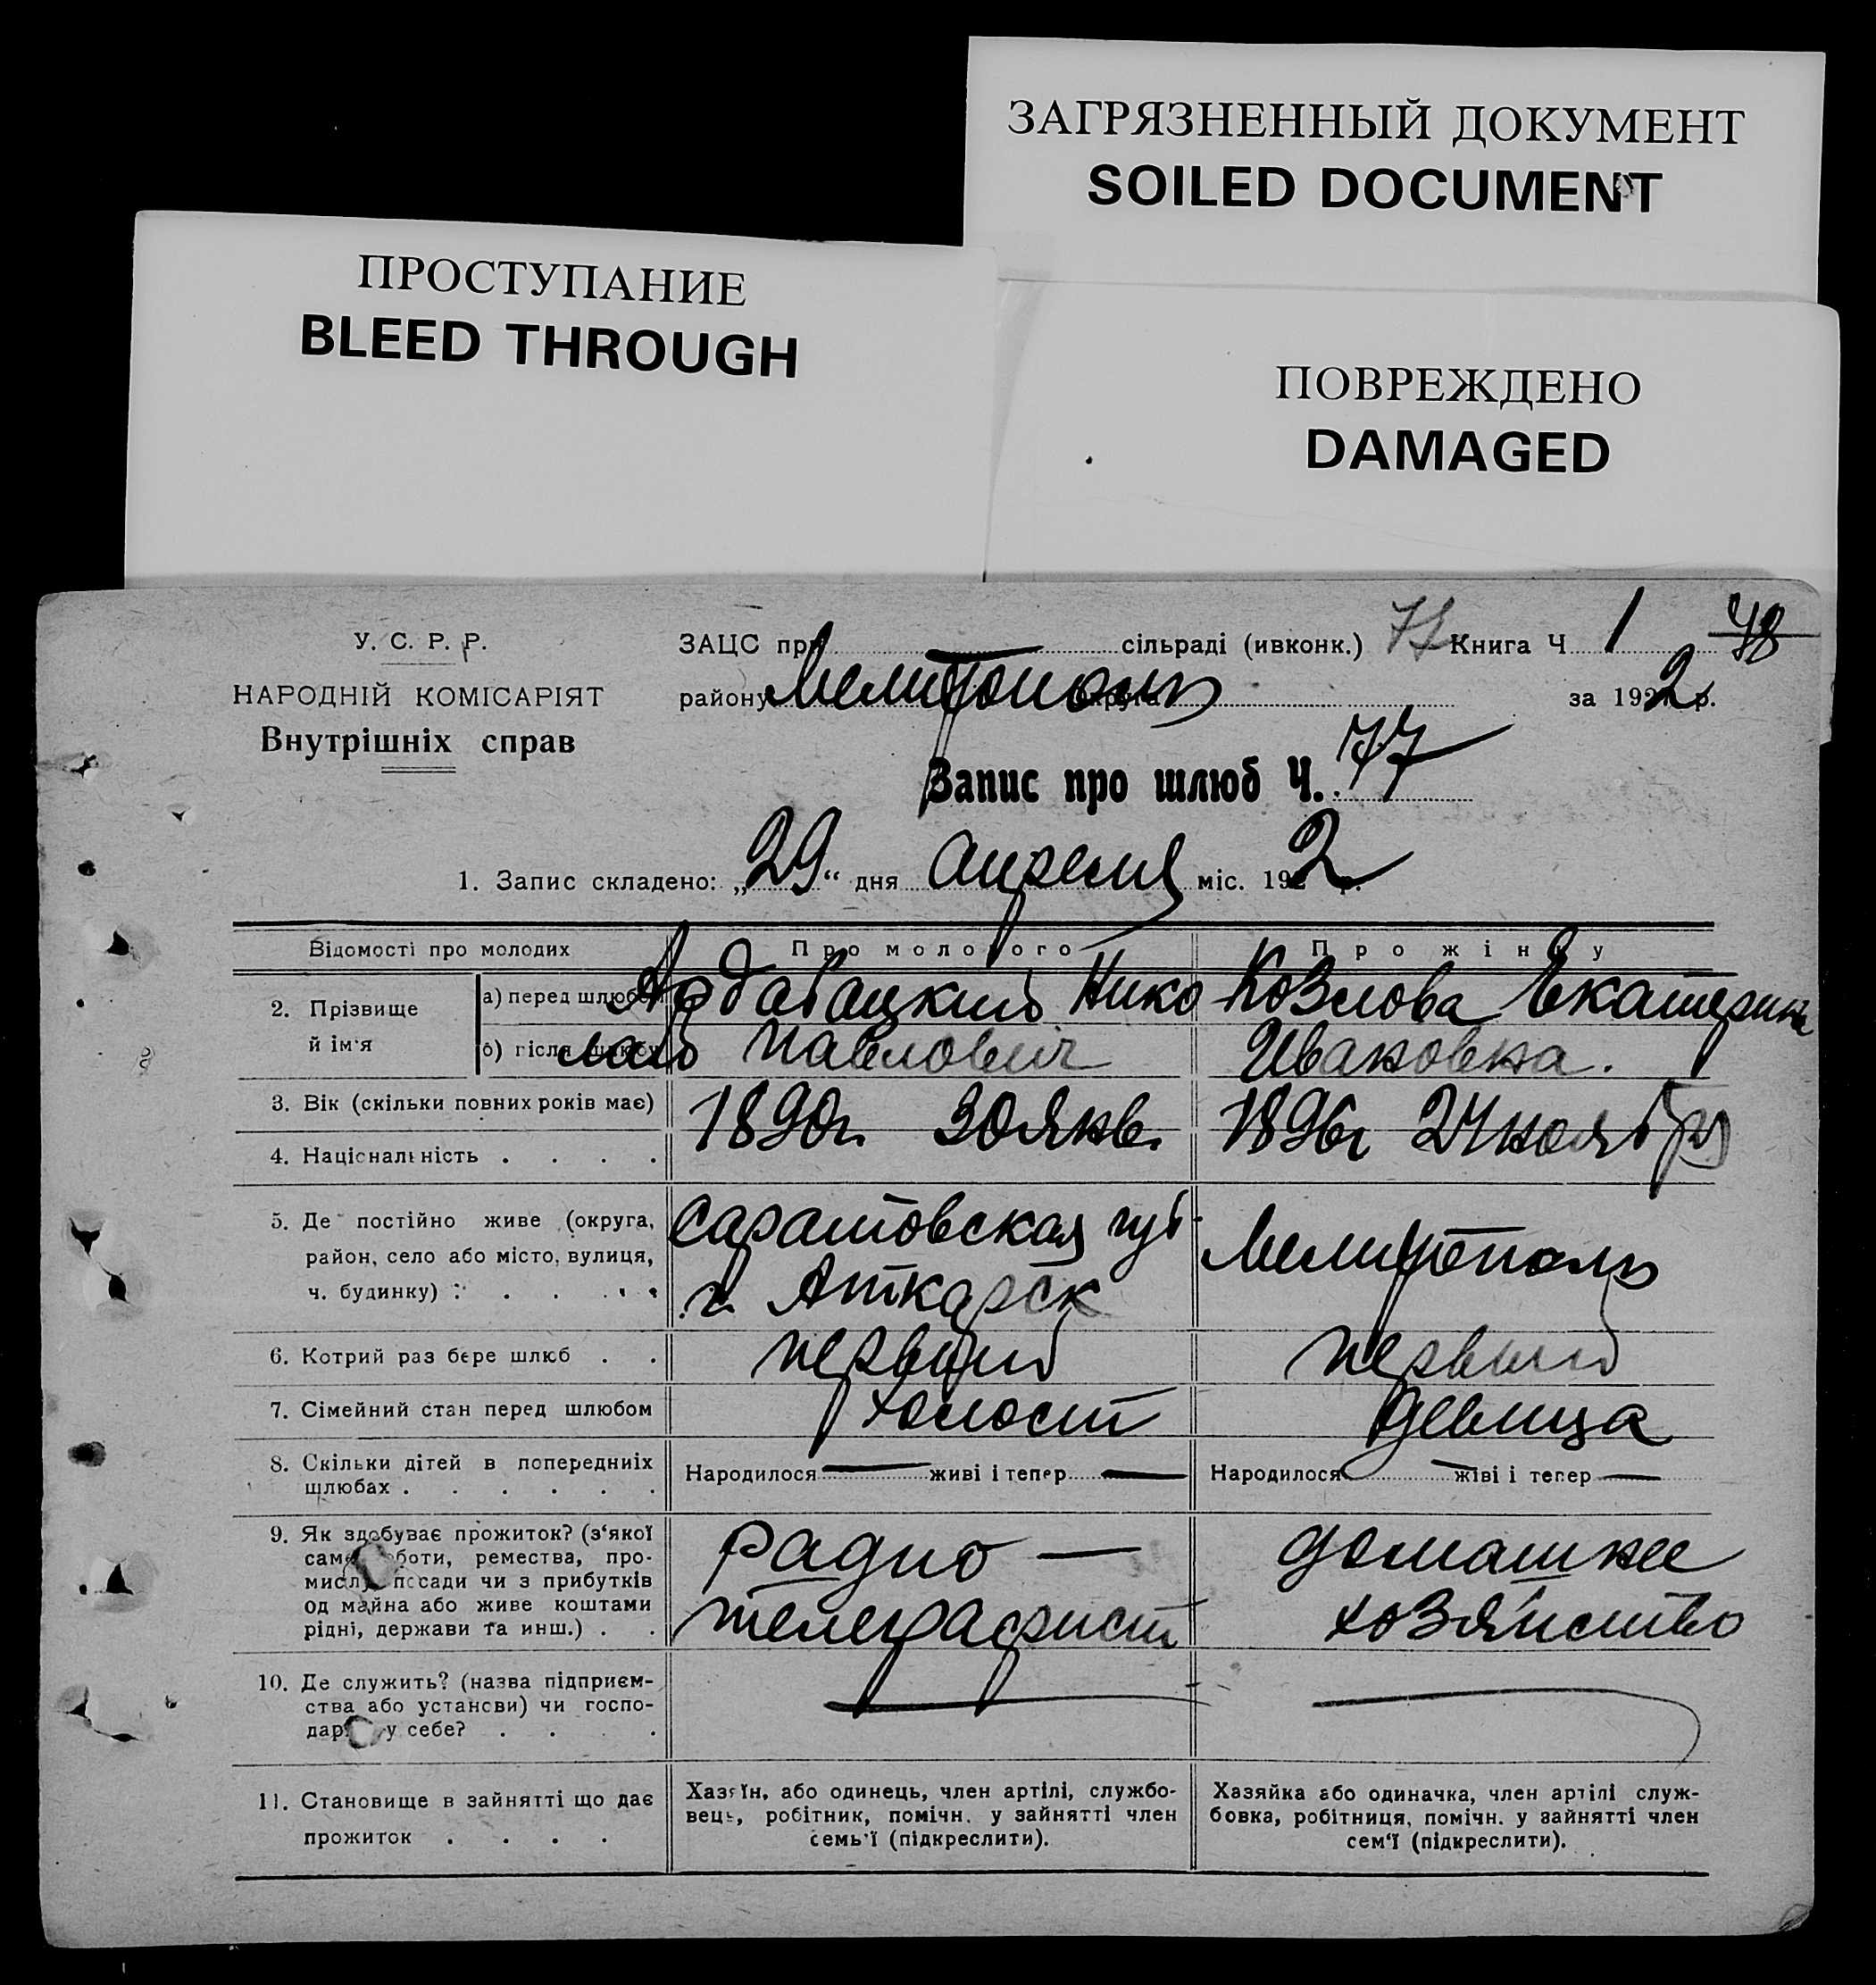 ЗАГРЯЗНЕННЫЙ ДОКУМЕНТ
SOILED DOCUMENT
ПРОСТУПАНИЕ
BLEED THROUGH
ПОВРЕЖДЕНО
DAMAGED
У. С. Р. Р.
НАРОДНІЙ КОМІСАРІЯТ
Внутрішніх справ
ЗАЦС при сільраді (ивконк.) Книга Ч 1 78
району Мелитополь округа за 1922 р.
Запис про шлюб Ч. 77
1. Запис складено: „29“ дня апреля міс. 1922 р.
Відомості про молодих Про молодого Про жінку
2. Прізвище й ім'я
а) перед шлюбом
б) після шлюбу
Ардабацкий Нико
лай Павлович
Козлова Екатерина
Ивановна.
3. Вік (скільки повних років має) 1890г. 30 янв. 1896г 24 ноября
4. Національність . . . .
5. Де постійно живе (округа,
район, село або місто, вулиця,
ч. будинку) : . . . .
Саратовская губ.
г. Аткарск
Мелитополь
6. Котрий раз бере шлюб . . первый первый
7. Сімейний стан перед шлюбом холост девица
8. Скільки дітей в попередниіх
шлюбах . . . . . .
Народилося — живі і тепер — Народилося — живі і тепер —
9. Як здобуває прожиток? (з'якої
саме роботи, ремества, про-
мислу, посади чи з прибутків
од майна або живе коштами
рідні, держави та инш.) . .
радио —
телеграфист
домашнее
хозяйство
10. Де служить? (назва підприєм-
ства або установи) чи госпо-
дарь у себе? . . . .
11. Становище в зайнятті що дає
прожиток . . . .
Хазяїн, або одинець, член артілі, службо-
вець, робітник, помічн. у зайнятті член
семь'ї (підкреслити).
Хазяйка або одиначка, член артілі служ-
бовка, робітниця, помічн. у зайнятті член
сем'ї (підкреслити).